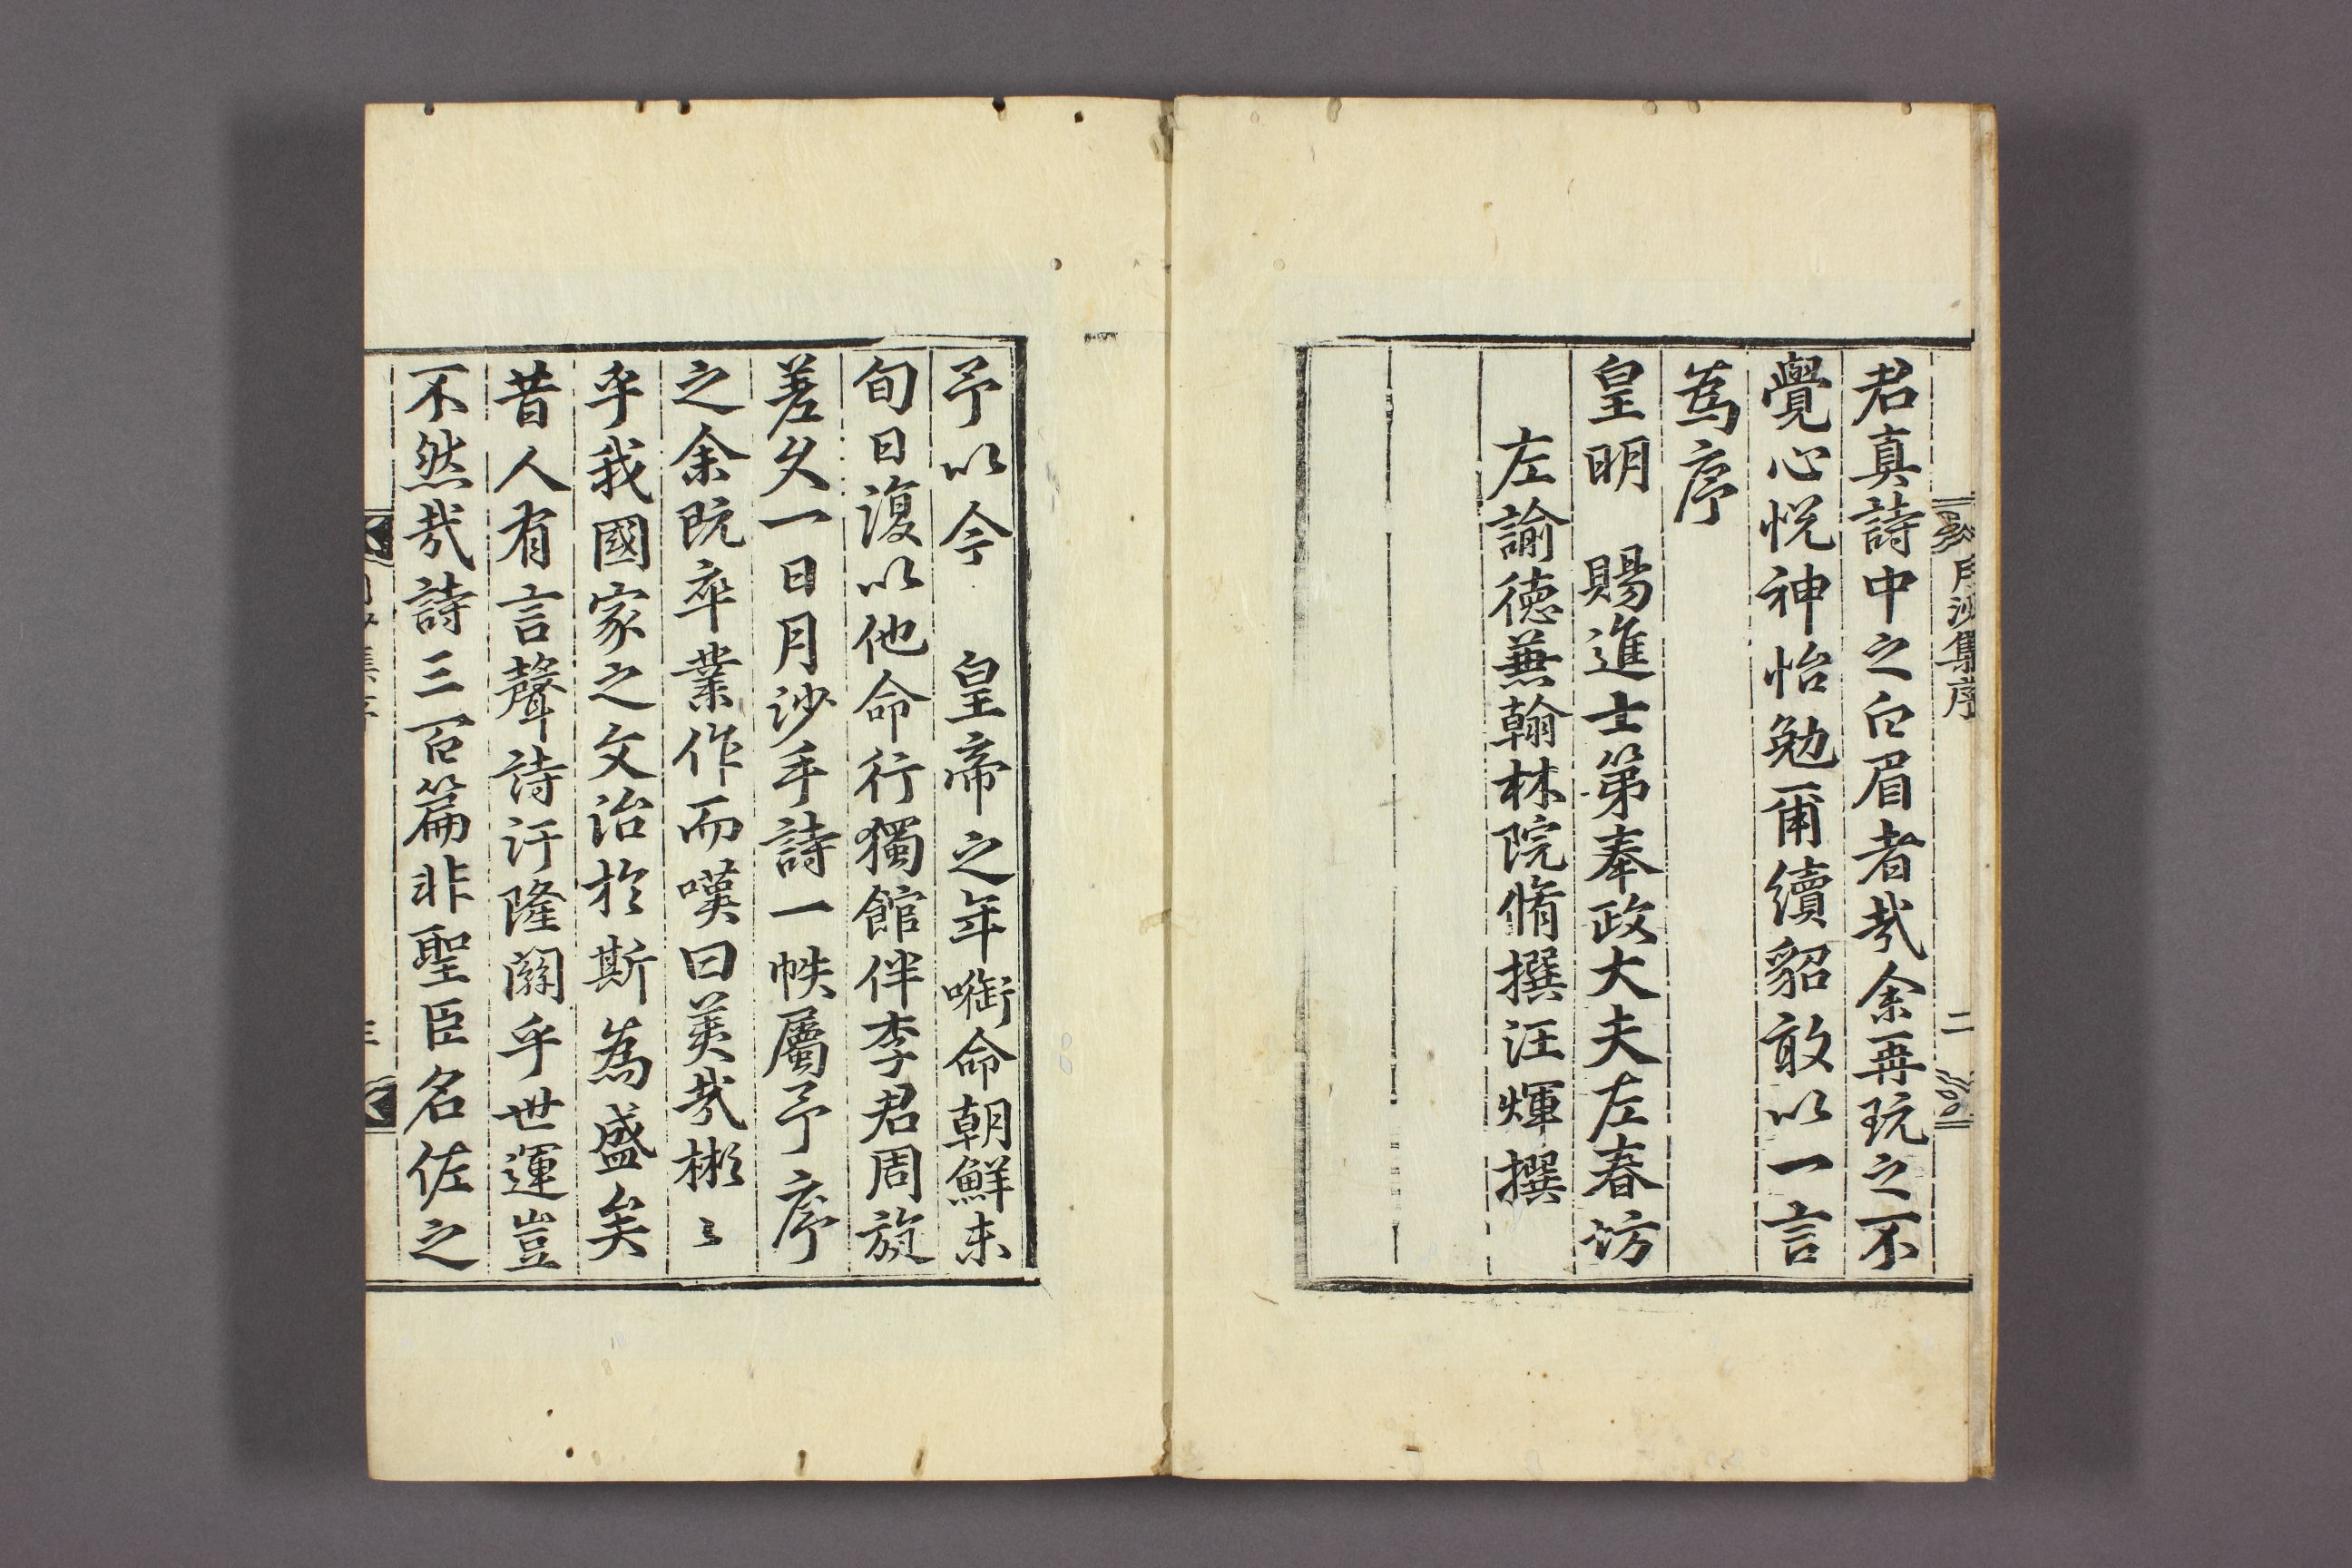 月沙集序 二
君真詩中之白眉者㢤余再玩之不
覺心悅神怡勉爾續貂敢以一言
為序
皇明 賜進士第奉政大夫左春坊
左諭德蒹翰林院脩撰汪煇撰
予以今 皇帝之年㗸命朝鮮未
旬日復以他命行獨館伴李君周旋
差久一日月沙手詩一帙屬予序
之余既卒業作而嘆曰美㢤彬〻
乎我國家之文治於斯為盛矣
昔人有言聲詩汙隆關乎世運豈
不然㢤詩三百篇非聖臣名佐之